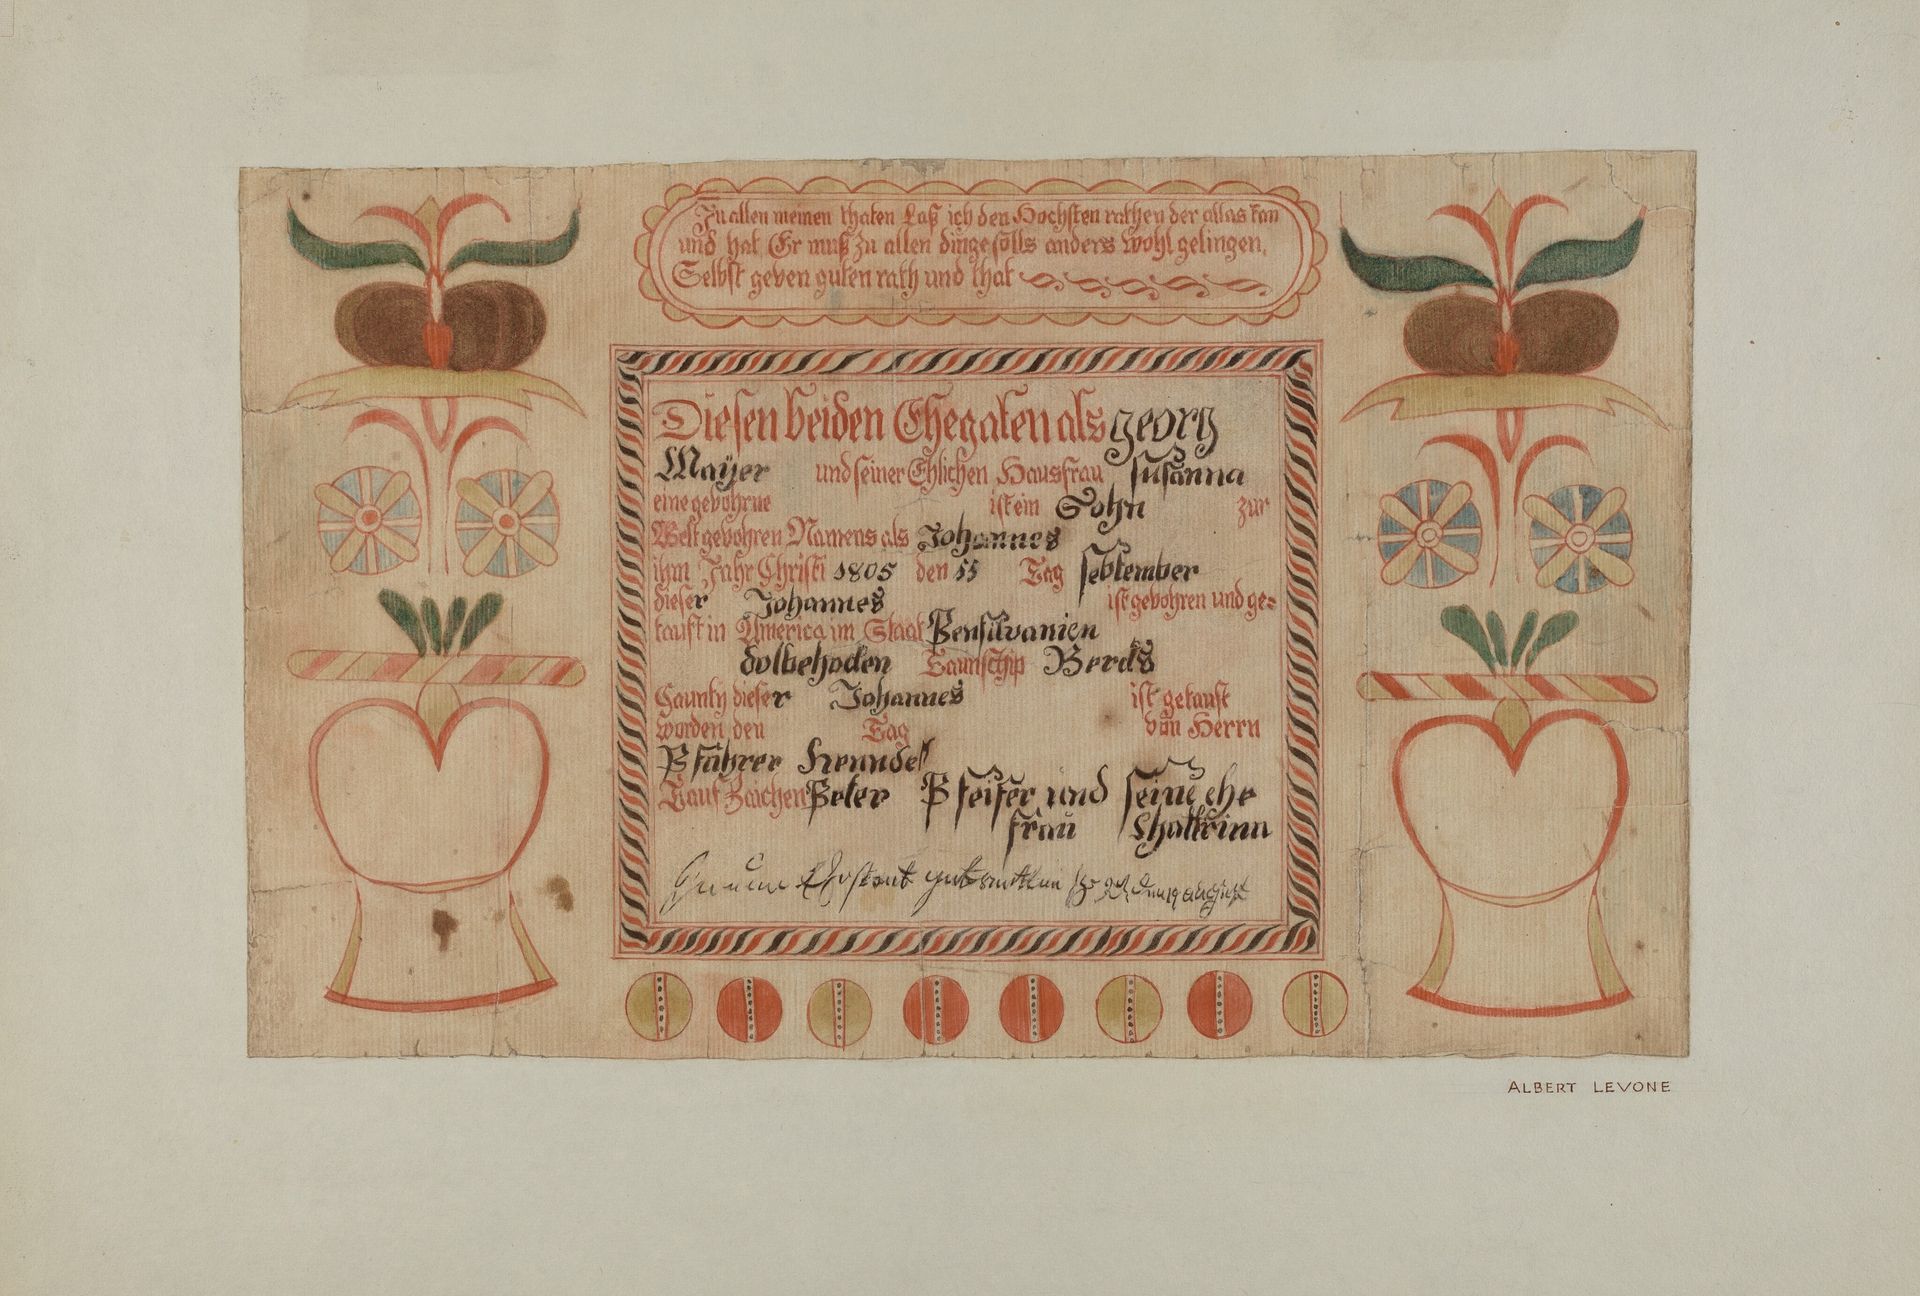 In allen meinen thaten Laß ich den Hochsten rathen der allas kan
und hat Er muß zu allen dinge solls anders wohl gelingen,
Selbst geven guten rath und that
Diesen beiden Ehegaten als georg
Mayer und seiner Ehlichen Hausfrau susanna
eine gebohrne ist ein Sohn zur
Welt gebohren Namens als Johannes
ihm Jahr Christi 1805 den 11 Tag september
dieser Johannes ist gebohren und ge=
tauft in America im Staat Pensilvanien
Taunschip Berds
County dieser Johannes ist getauft
worden den Tag von Herrn
Pfahrer
Tauf Zaichen Peter Pfeifer und seine ehe
frau Chattrina
august
ALBERT LEVONE